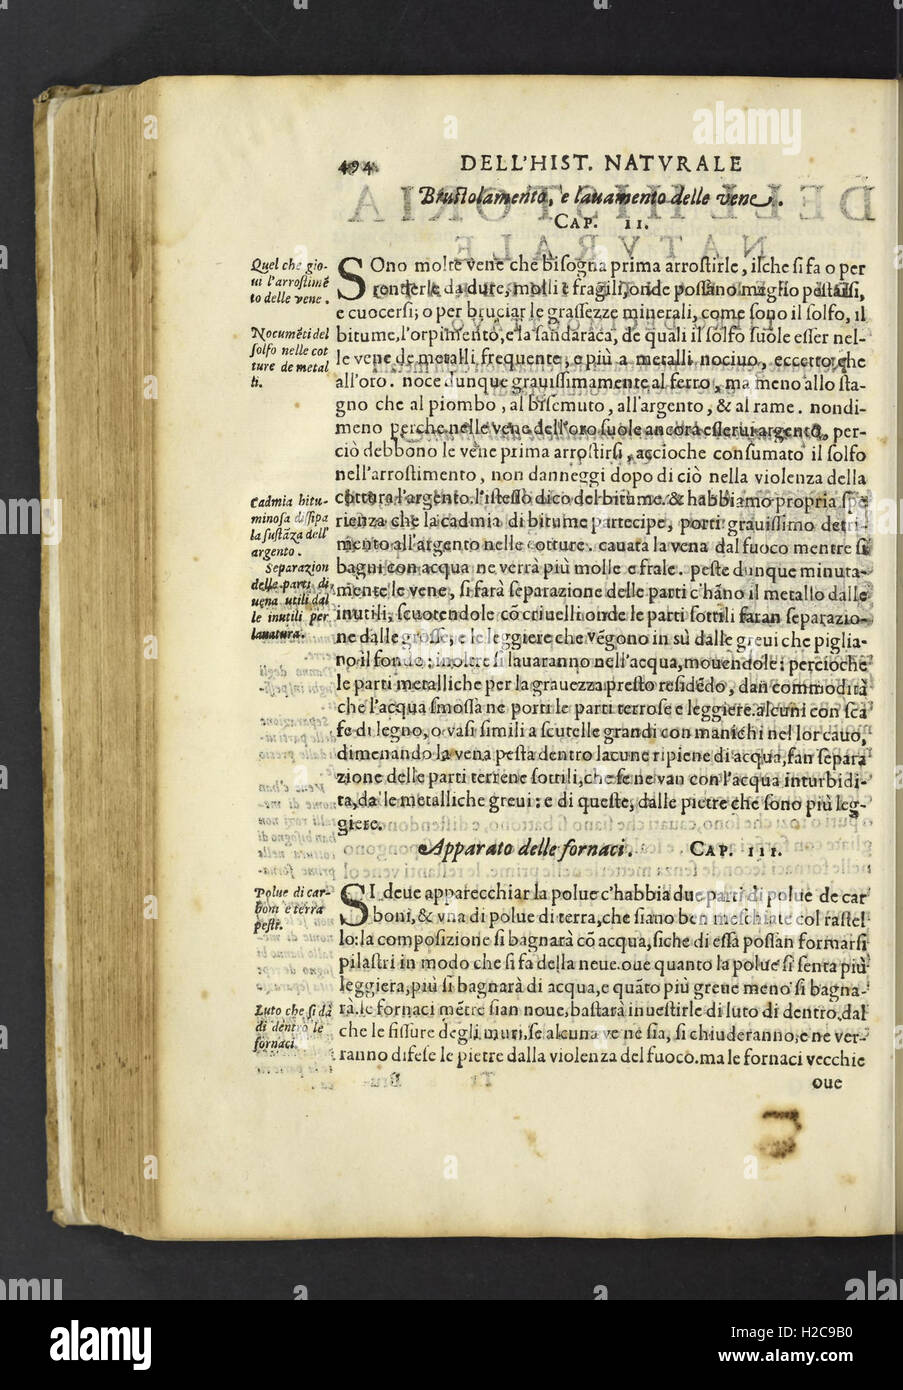 494
DELL'HIST. NATVRALE
Bruſtolamento, e lauamento delle vene.
CAP. II.
Quel che gio-
ui l'arroſtimẽ
to delle vene.
Nocumẽti del
ſolfo nelle cot
ture de metal
li.
Cadmia bitu-
minoſa diſſipa
la ſuſtãza dell'
argento.
Separazion
delle parti di
uena utili dal
le inutili per
lauatura.
SOno molte vene che biſogna prima arroſtirle, ilche ſi fa o per
renderle da dure, molli e fragili, onde poſſano meglio peſtarſi,
e cuocerſi; o per bruciar le graſſezze minerali, come ſono il ſolfo, il
bitume, l'orpimento, e la ſandaraca, de quali il ſolfo ſuole eſſer nel-
le vene de metalli frequente, e più a metalli nociuo, eccetto che
all'oro. noce dunque grauiſſimamente al ferro, ma meno allo ſta-
gno che al piombo, al biſemuto, all'argento, & al rame. nondi-
meno perche nelle vene dell'oro ſuole ancora eſſerui argento, per-
ciò debbono le vene prima arroſtirſi, accioche conſumato il ſolfo
nell'arroſtimento, non danneggi dopo di ciò nella violenza della
cottura l'argento. l'iſteſſo dico del bitume. & habbiamo propria ſpe
rienza che la cadmia di bitume partecipe, porti grauiſſimo detri-
mento all'argento nelle cotture. cauata la vena dal fuoco mentre ſi
bagni con acqua ne verrà più molle e frale. peſte dunque minuta-
mente le vene, ſi farà ſeparazione delle parti c'hãno il metallo dalle
inutili, ſcuotendole cõ criuelli onde le parti ſottili faran ſeparazio-
ne dalle groſſe, e le leggiere che vẽgono in sù dalle greui che piglia-
no il fondo: inoltre ſi lauaranno nell'acqua, mouendole: percioche
le parti metalliche per la grauezza preſto reſidẽdo, dan commodità
che l'acqua ſmoſſa ne porti le parti terroſe e leggiere. alcuni con ſca
fe di legno, o vaſi ſimili a ſcutelle grandi con manichi nel lor cauo,
dimenando la vena peſta dentro lacune ripiene di acqua, fan ſepara
zione delle parti terrene ſottili, che ſe ne van con l'acqua inturbidi-
ta, da le metalliche greui: e di queſte, dalle pietre che ſono più leg-
giere.
Apparato delle fornaci. CAP. III.
Polue di car-
boni e terra
peſti.
Luto che ſi dà
di dentro le
fornaci.
SI deue apparecchiar la polue c'habbia due parti di polue de car
boni, & vna di polue di terra, che ſiano ben meſchiate col raſtel-
lo: la compoſizione ſi bagnarà cõ acqua, ſiche di eſſa poſſan formarſi
pilaſtri in modo che ſi fa della neue. oue quanto la polue ſi ſenta più
leggiera, più ſi bagnarà di acqua, e quãto più greue meno ſi bagna-
rà. le fornaci mẽtre ſian noue, baſtarà inueſtirle di luto di dentro. dal
che le fiſſure degli muri, ſe alcuna ve ne ſia, ſi chiuderanno, e ne ver-
ranno difeſe le pietre dalla violenza del fuoco. ma le fornaci vecchie
oue
alamy
Image ID: H2C9B0
www.alamy.com